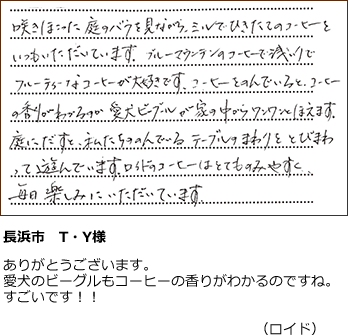 咲きほこった庭のバラを見ながら、ミルでひきたてのコーヒーを
いつもいただいています。ブルーマウンテンのコーヒーで浅いりで
フルーティーなコーヒーが大好きです。コーヒーをのんでいると、コーヒー
の香りがわかるのか愛犬ビーグルが家の中からワンワンとほえます。
庭にだすと、私たちののんでいるテーブルのまわりをとびまわ
って遊んでいます。ロイドのコーヒーはとてものみやすく、
毎日楽しみにいただいています。
長浜市　T・Y様
ありがとうございます。
愛犬のビーグルもコーヒーの香りがわかるのですね。
すごいです！！
（ロイド）